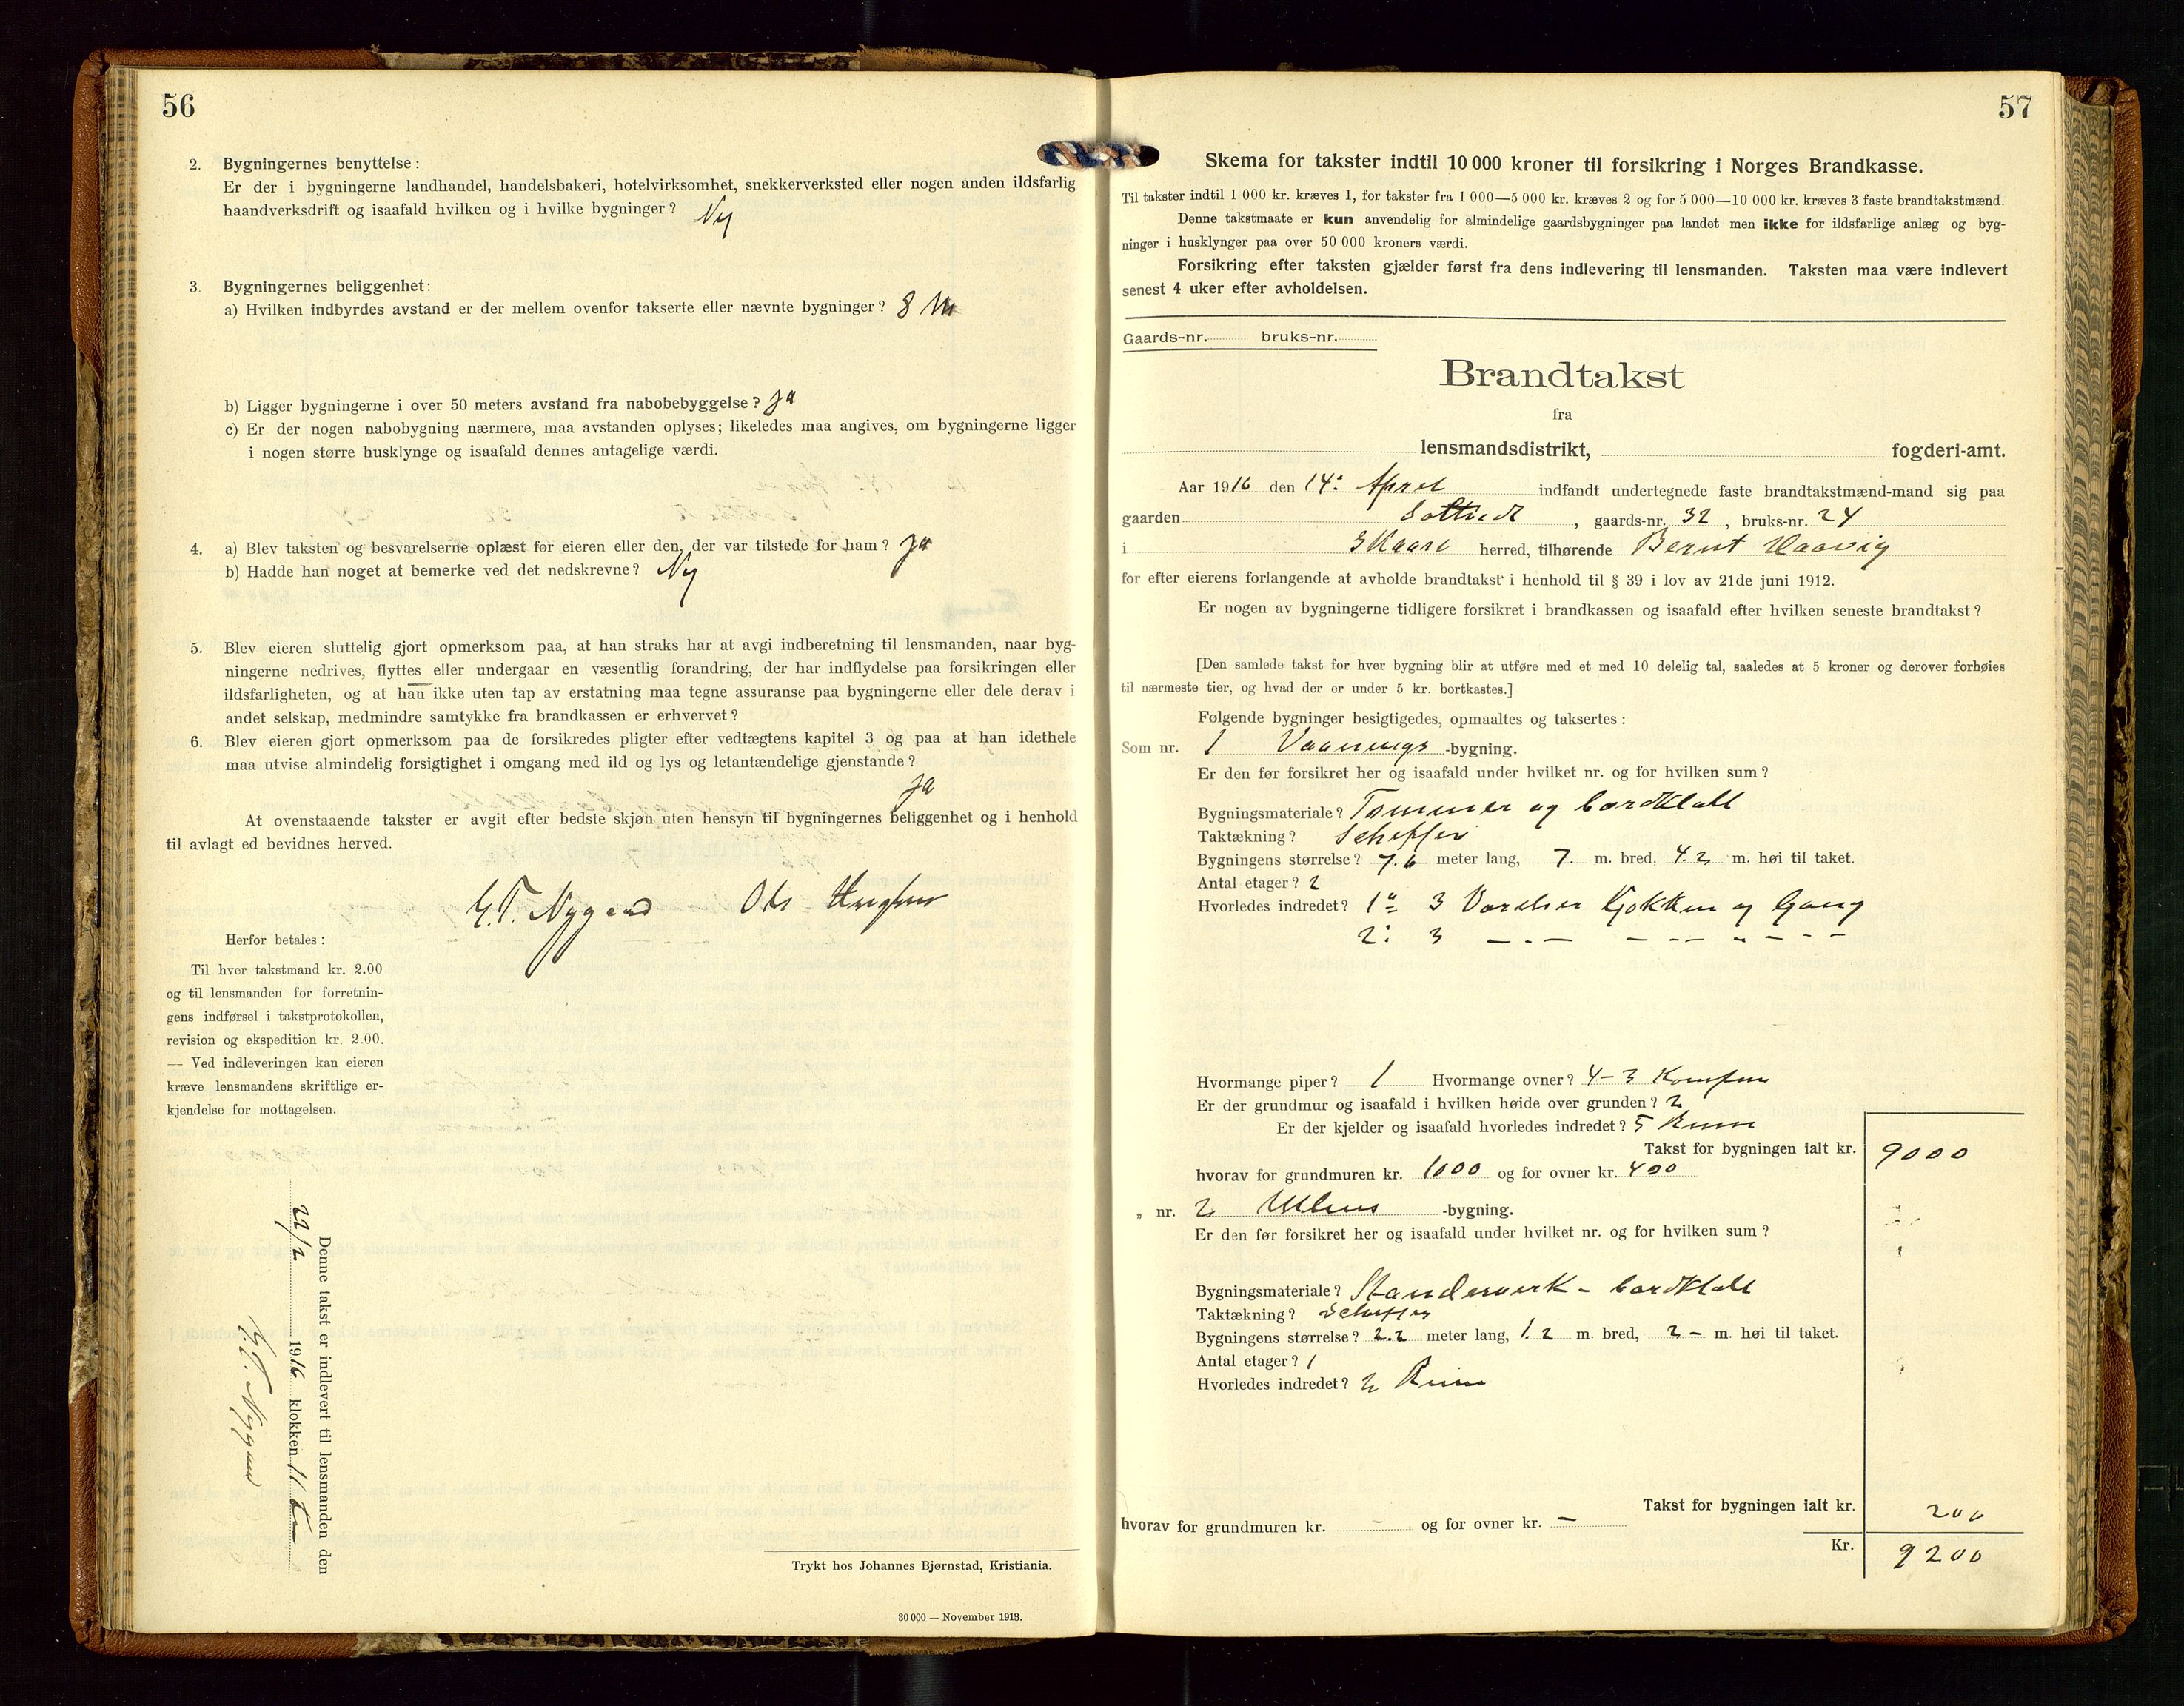 56
2. Bygningernes benyttelse:
Er der i bygningerne landhandel, handelsbakeri, hotelvirksomhet, snekkerverksted eller nogen anden ildsfarlig
haandverksdrift og isaafald hvilken og i hvilke bygninger? Nej
3. Bygningernes beliggenhet:
a) Hvilken indbyrdes avstand er der mellem ovenfor takserte eller nævnte bygninger? 8 M
b) Ligger bygningerne i over 50 meters avstand fra nabobebyggelse? Ja
c) Er der nogen nabobygning nærmere, maa avstanden oplyses; likeledes maa angives, om bygningerne ligger
i nogen større husklynge og isaafald dennes antagelige værdi.
4. a) Blev taksten og besvarelserne oplæst for eieren eller den, der var tilstede for ham? Ja
b) Hadde han noget at bemerke ved det nedskrevne? Nej
5. Blev eieren sluttelig gjort opmerksom paa, at han straks har at avgi indberetning til lensmanden, naar byg-
ningerne nedrives, flyttes eller undergaar en væsentlig forandring, der har indflydelse paa forsikringen eller
ildsfarligheten, og at han ikke uten tap av erstatning maa tegne assuranse paa bygningerne eller dele derav i
andet selskap, medmindre samtykke fra brandkassen er erhvervet?
6. Blev eieren gjort opmerksom paa de forsikredes pligter efter vedtægtens kapitel 3 og paa at han idethele
maa utvise almindelig forsigtighet i omgang med ild og lys og letantændelige gjenstande?
Ja
At ovenstaaende takster er avgit efter bedste skjøn uten hensyn til bygningernes beliggenhet og i henhold
til avlagt ed bevidnes herved.
Nygaard
Herfor betales:
Til hver takstmand kr. 2.00
og til lensmanden for forretnin-
gens indførsel i takstprotokollen,
revision og ekspedition kr. 2.00.
— Ved indleveringen kan eieren
kræve lensmandens skriftlige er-
kjendelse for mottagelsen.
Denne takst er indlevert til lensmanden den
22/2 1916 klokken 11
Nygaard
Trykt hos Johannes Bjørnstad, Kristiania.
30 000 — November 1913.
57
Skema for takster indtil 10 000 kroner til forsikring i Norges Brandkasse.
Til takster indtil 1 000 kr. kræves 1, for takster fra 1 000—5 000 kr. kræves 2 og for 5 000—10 000 kr. kræves 3 faste brandtakstmænd.
Denne takstmaate er kun anvendelig for almindelige gaardsbygninger paa landet men ikke for ildsfarlige anlæg og byg-
ninger i husklynger paa over 50 000 kroners værdi.
Forsikring efter taksten gjælder først fra dens indlevering til lensmanden. Taksten maa være indlevert
senest 4 uker efter avholdelsen.
Gaards-nr. bruks-nr.
Brandtakst
fra
lensmandsdistrikt, fogderi-amt.
Aar 1916 den 14. April indfandt undertegnede faste brandtakstmænd-mand sig paa
gaarden , gaards-nr. 32, bruks-nr. 24
i Skaare herred, tilhørende Bernt Vaavig
for efter eierens forlangende at avholde brandtakst i henhold til § 39 i lov av 21de juni 1912.
Er nogen av bygningerne tidligere forsikret i brandkassen og isaafald efter hvilken seneste brandtakst?
[Den samlede takst for hver bygning blir at utføre med et med 10 delelig tal, saaledes at 5 kroner og derover forhøies
til nærmeste tier, og hvad der er under 5 kr. bortkastes.]
Følgende bygninger besigtigedes, opmaaltes og taksertes:
Som nr. 1 Vaanings-bygning.
Er den før forsikret her og isaafald under hvilket nr. og for hvilken sum?
Bygningsmateriale? Tømmer og bordklædt
Taktækning? Scheffer
Bygningens størrelse? 7.6 meter lang, 7. m. bred, 4.2 m. høi til taket.
Antal etager? 2
Hvorledes indredet? 1ª 3 Værelser Kjøkken og Gang
2: 3 – · – – – – „ – – –
Hvormange piper? 1 Hvormange ovner? 4 – 3 Komfur
Er der grundmur og isaafald i hvilken høide over grunden? 2
Er der kjelder og isaafald hvorledes indredet? 5 Rum
Takst for bygningen ialt kr. 9000
hvorav for grundmuren kr. 1000 og for ovner kr. 400
„ nr. 2 Uthus-bygning.
Er den før forsikret her og isaafald under hvilket nr. og for hvilken sum?
Bygningsmateriale? Standerverk – bordklædt
Taktækning? Scheffer
Bygningens størrelse? 2.2 meter lang, 1.2 m. bred, 2 – m. høi til taket.
Antal etager? 1
Hvorledes indredet? 2 Rum
Takst for bygningen ialt kr. 200
hvorav for grundmuren kr. – og for ovner kr. –
Kr. 9200